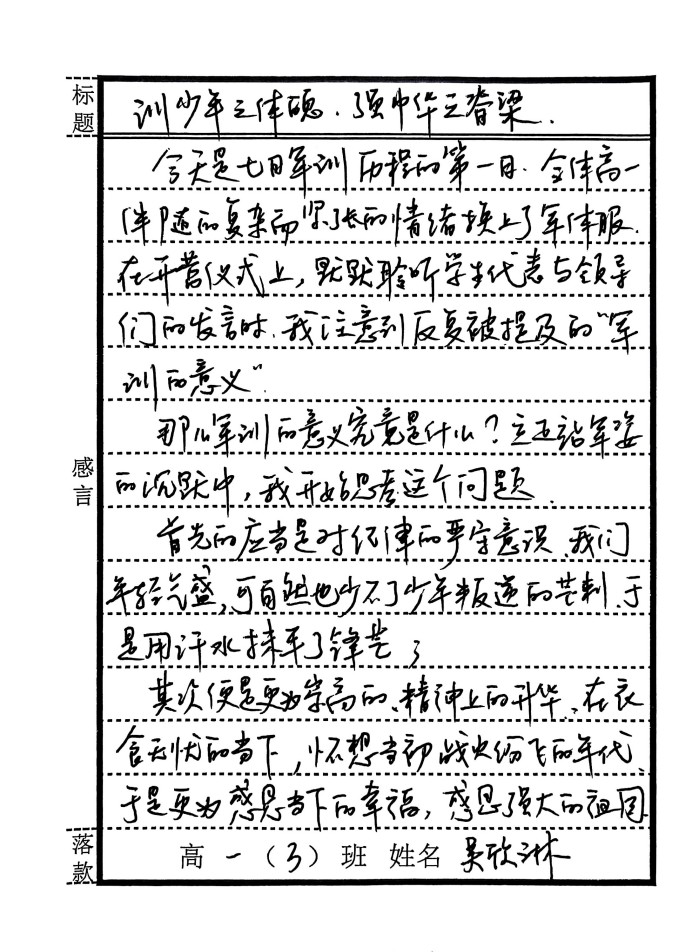 标题
训少年之体魄，强中华之脊梁．
今天是七日军训历程的第一日．全体高一
伴随的复杂而紧张的情绪换上了军体服．
在开营仪式上，默默聆听学生代表与领导
们的发言时．我注意到反复被提及的“军
训的意义”
那么军训的意义究竟是什么？立正站军姿
感言
的沉默中，我开始思考这个问题．
首先的应当是对纪律的严守意识．我们
年轻气盛，可自然也少不了少年叛逆的芒刺．于
是用汗水抹平了锋芒；
其次便是更为崇高的、精神上的升华．在衣
食无忧的当下，怀想当初战火纷飞的年代、
于是更为感恩当下的幸福，感恩强大的祖国．
落款
高一（3）班 姓名 吴欣沐